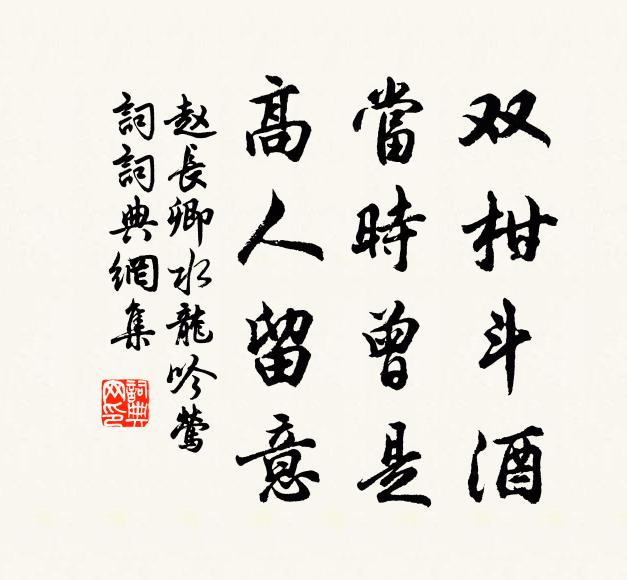 双柑斗酒
當時曾是
高人留意
赵長卿水龍吟鶯
詞詞典網集
詞典网印